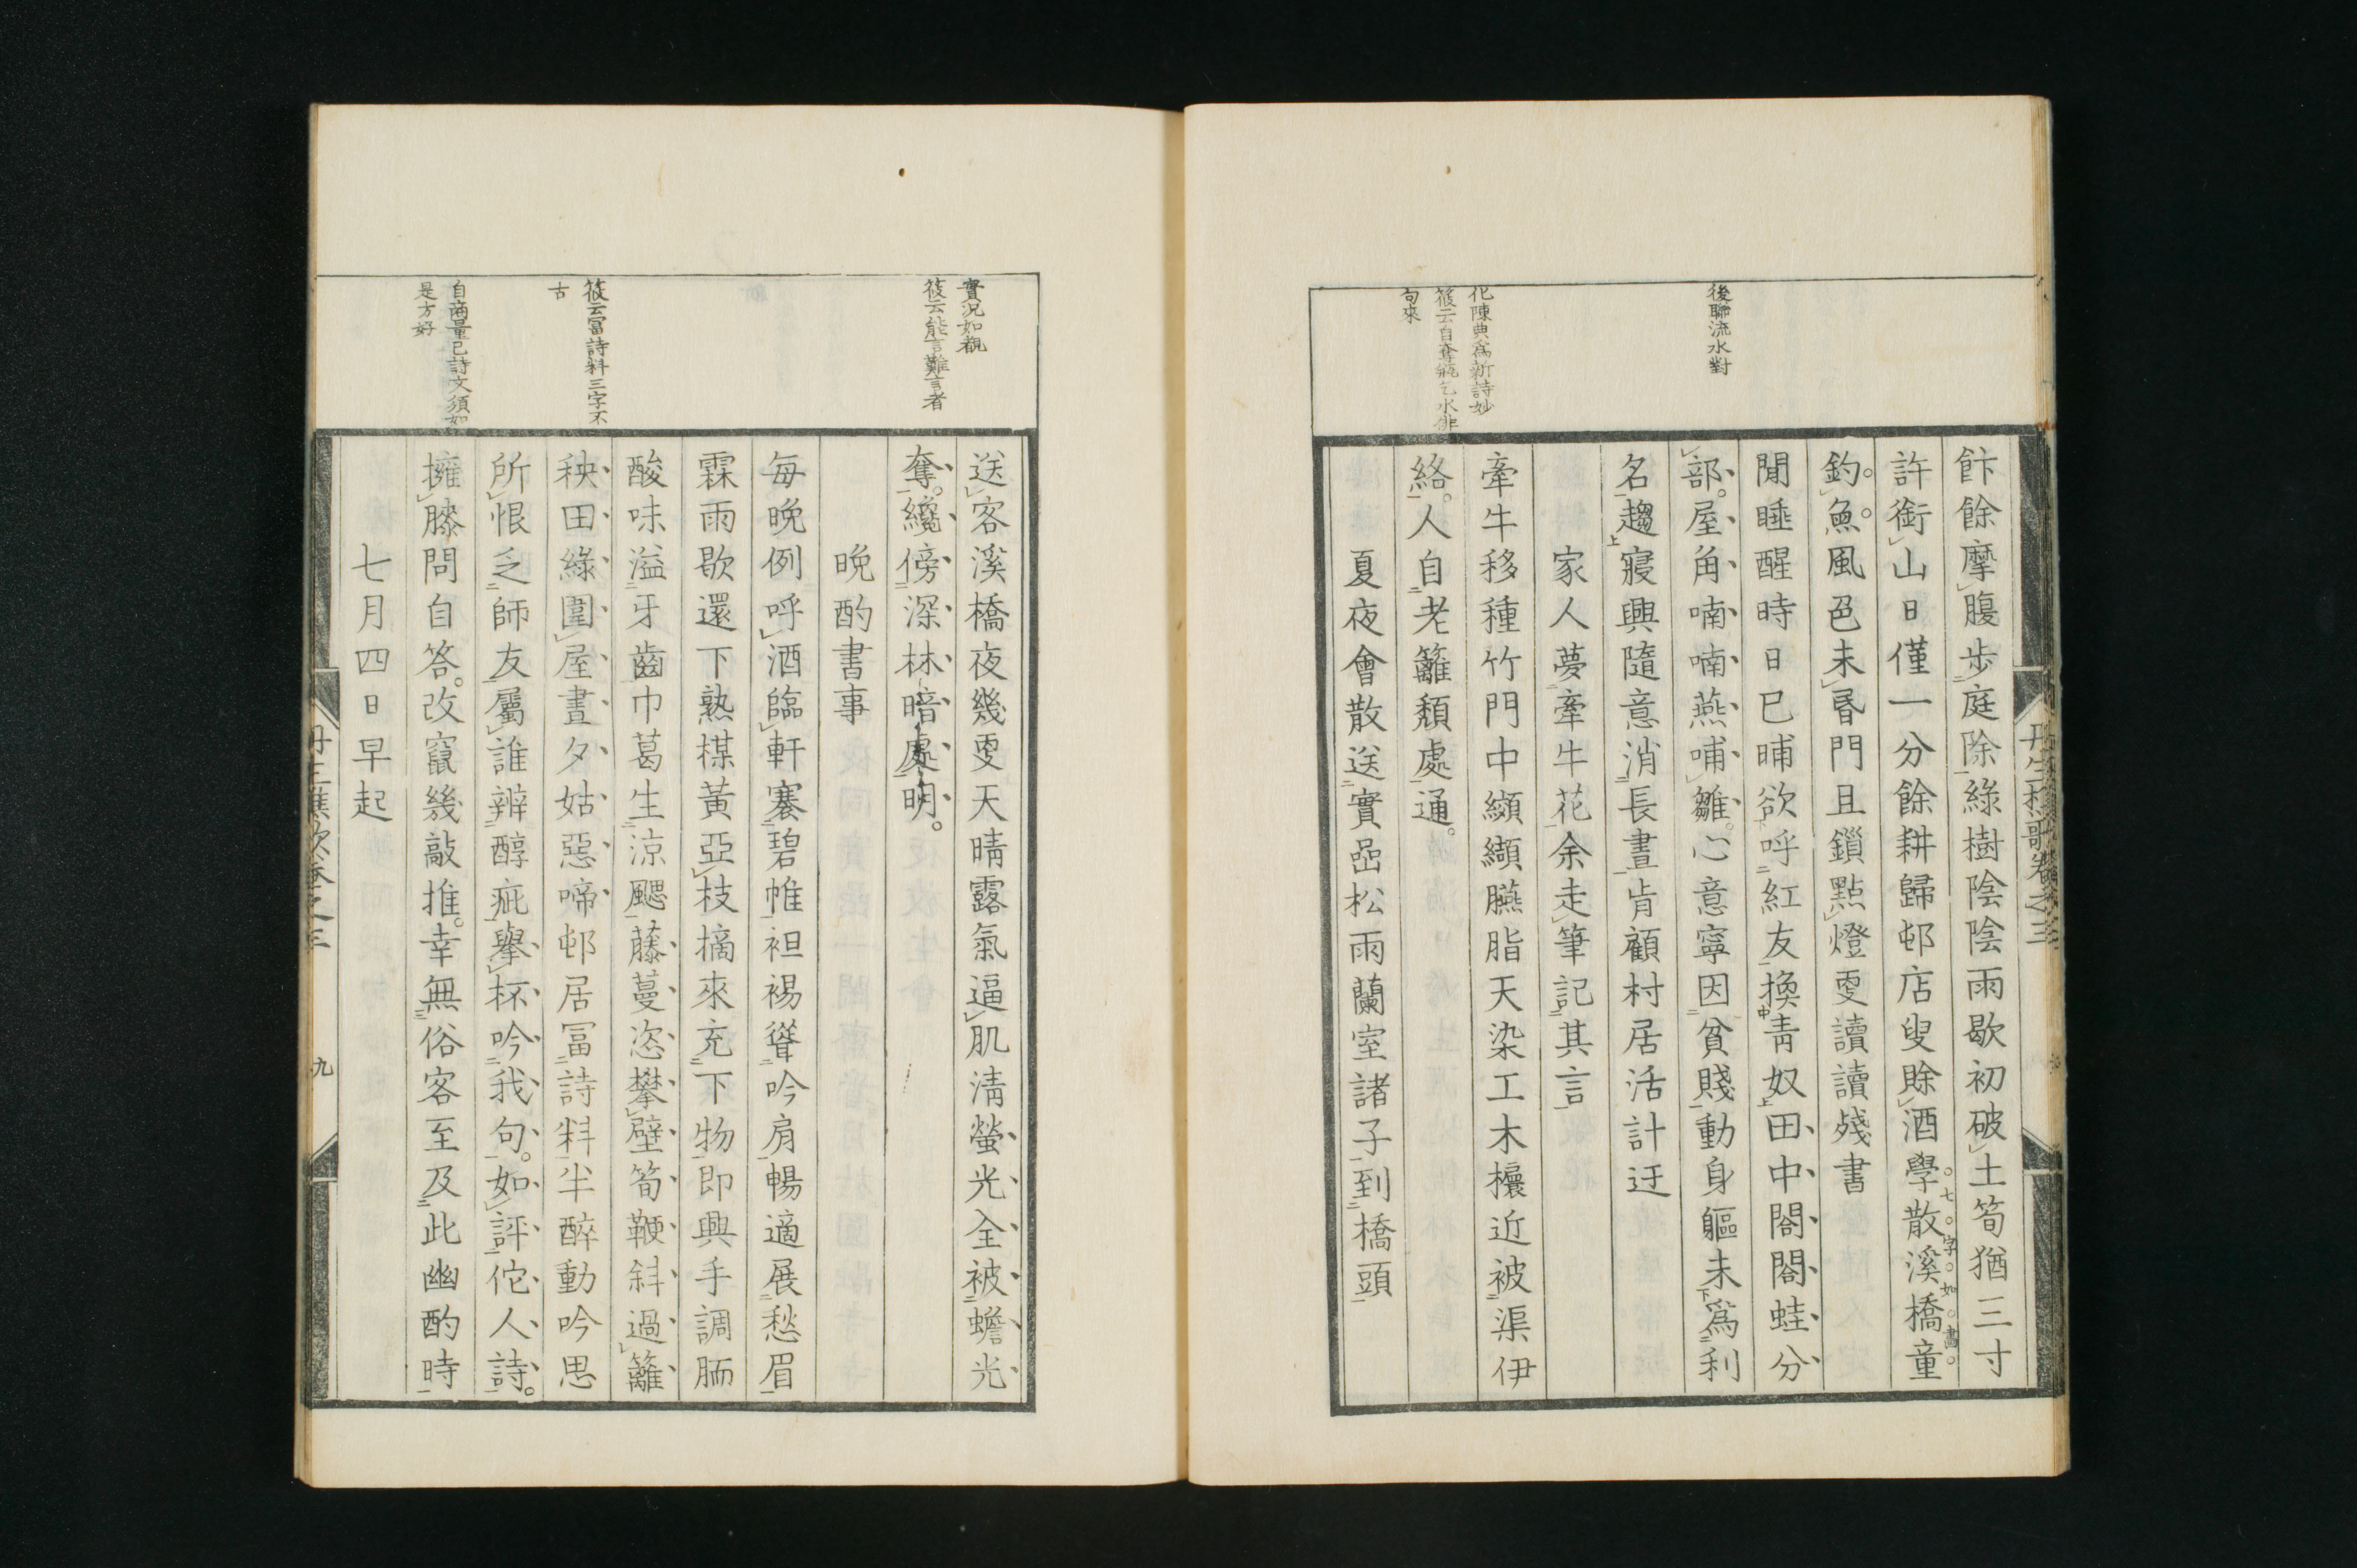 後聯流水對
化陳典爲新詩妙
筱云自奪瓶乞水俳
句來
飰餘摩腹步庭除綠樹陰陰雨歇初破土筍猶三寸
許銜山日僅一分餘耕歸邨店叟賒酒學散溪橋童
七字如畵
釣魚風邑未昏門且鎻點燈雯讀讀殘書
閒睡醒時日巳晡欲呼紅友換靑奴田中閤閤蛙分
部屋角喃喃燕哺雛心意寧因貧賤動身軀未爲利
名趨寢興隨意消長晝肯顧村居活計迂
家人夢牽牛花余走筆記其言
牽牛移種竹門中纈纈臙脂天染工木欀近被渠伊
絡人自老籬頽處通
夏夜會散送實嵒松雨蘭室諸子到橋頭
丹生樵歌卷之三
實況如觀
筱云能言難言者
筱云冨詩料三字不
古
自商量己詩文須如
是方好
送客溪橋夜幾雯天晴露氣逼肌淸螢光全被蟾光
奪纔傍深林暗處明
晩酌書事
每晩例呼酒臨軒褰碧帷袒裼聳吟肩暢適展愁眉
霖雨歇還下熟楳黃亞枝摘來充下物即興手調胹
酸味溢牙齒巾葛生涼颸藤蔓恣攀壁筍鞭斜過籬
秧田綠圍屋晝夕姑惡啼邨居冨詩料半醉動吟思
所恨乏師友屬誰辨醇疵擧杯吟我句如評佗人詩
擁膝問自答改竄幾敲推幸無俗客至及此幽酌時
七月四日早起
九